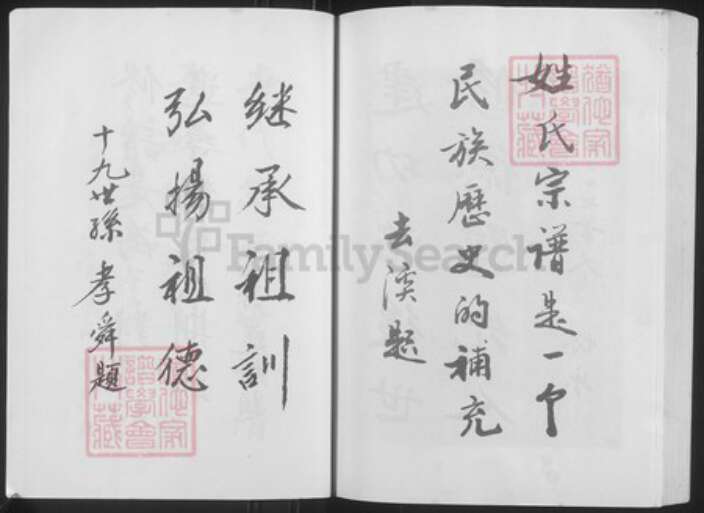 姓氏宗谱是一个
民族歷史的補充
去淡题
继承祖訓
弘揚祖德
十九世孫 孝舜題
FamilySearch